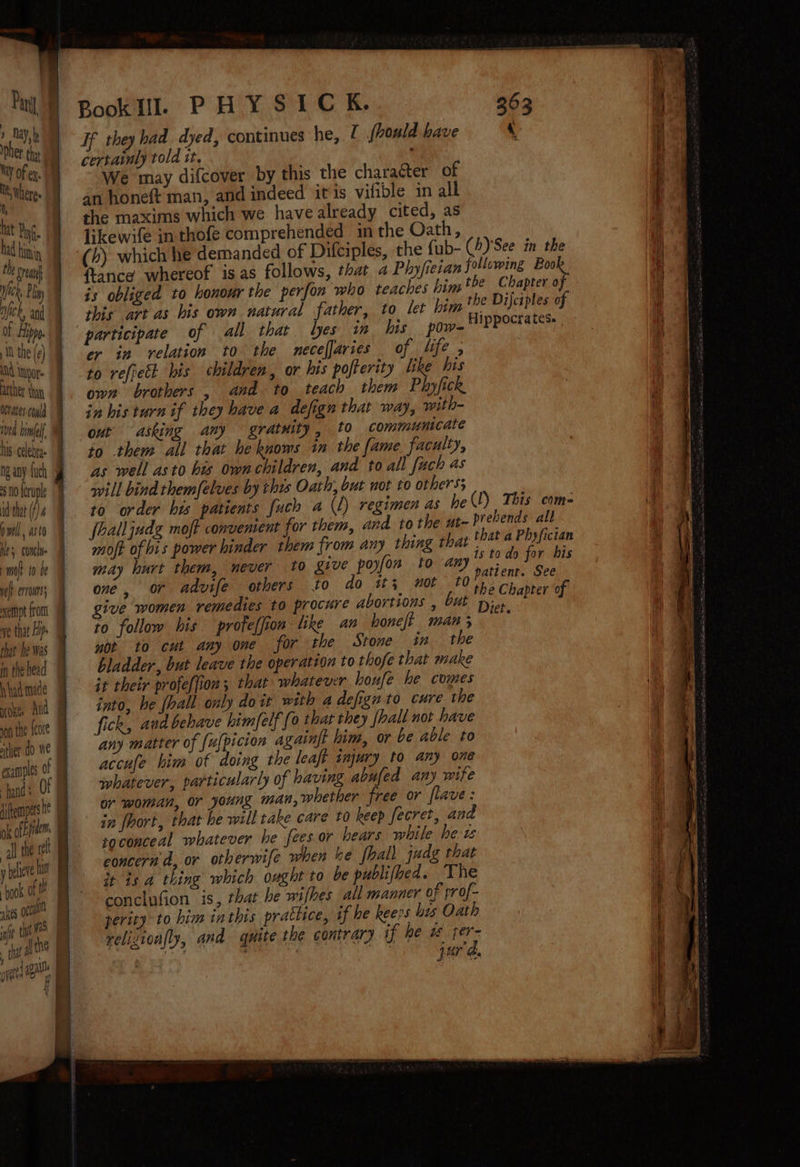 Book III. PHYSICK. 363
If they had dyed, continues he, I ſhould have
certainly told it.
We may diſcover by this the character of
an honeſt man, and indeed it is viſible in all
the maxims which we have already cited, as
likewiſe in thoſe comprehended in the Oath,
(h) which he demanded of Diſciples, the ſub-
ſtance whereof is as follows, that a Phyſician
is obliged to honour the perſon who teaches him
this art as his own natural father, to let him
participate of all that lyes in his pow-
er in relation to the neceſſaries of life,
to reſpect his children, or his poſterity like his
own brothers, and to teach them Phyſick
in his turn if they have a deſign that way, with-
out asking any gratuity, to communicate
to them all that he knows in the ſame faculty,
as well as to his own children, and to all ſuch as
will bind themſelves by this Oath, but not to others;
to order his patients ſuch a (l) regimen as he
ſhall judg moſt convenient for them, and to the ut-
moſt of his power hinder them from any thing that
may hurt them, never to give poyſon to any
one, or adviſe others to do it; not to
give women remedies to procure abortions, but
to follow his profeſſion like an honeſt man;
not to cut any one for the Stone in the
bladder, but leave the operation to thoſe that make
it their profeſſion; that whatever houſe he comes
into, he ſhall only do it with a deſign to cure the
ſick, and behave himſelf ſo that they ſhall not have
any matter of ſuſpicion againſt him, or be able to
accuſe him of doing the leaſt injury to any one
whatever, particularly of having abuſed any wife
or woman, or young man, whether free or ſlave:
in ſhort, that he will take care to keep ſecret, and
to conceal whatever he ſees or hears while he is
concern'd, or otherwiſe when he ſhall judg that
it is a thing which ought to be publiſhed. The
concluſion is, that he wiſhes all manner of proſ-
perity to him in this practice, if he keeps his Oath
religiouſly, and quite the contrary if he is per-
jur'd.
(h) See in the
following Book
the Chapter of
the Diſciples of
Hippocrates.
(l) This com-
prehends all
that a Phyſician
is to do for his
patient. See
the Chapter of
Diet.